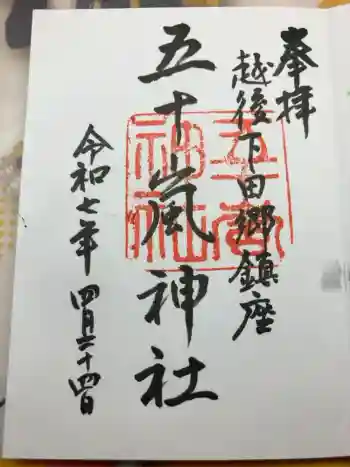 奉拝
越後下田郷鎮座
五十嵐神社
令和七年 四月二十四日